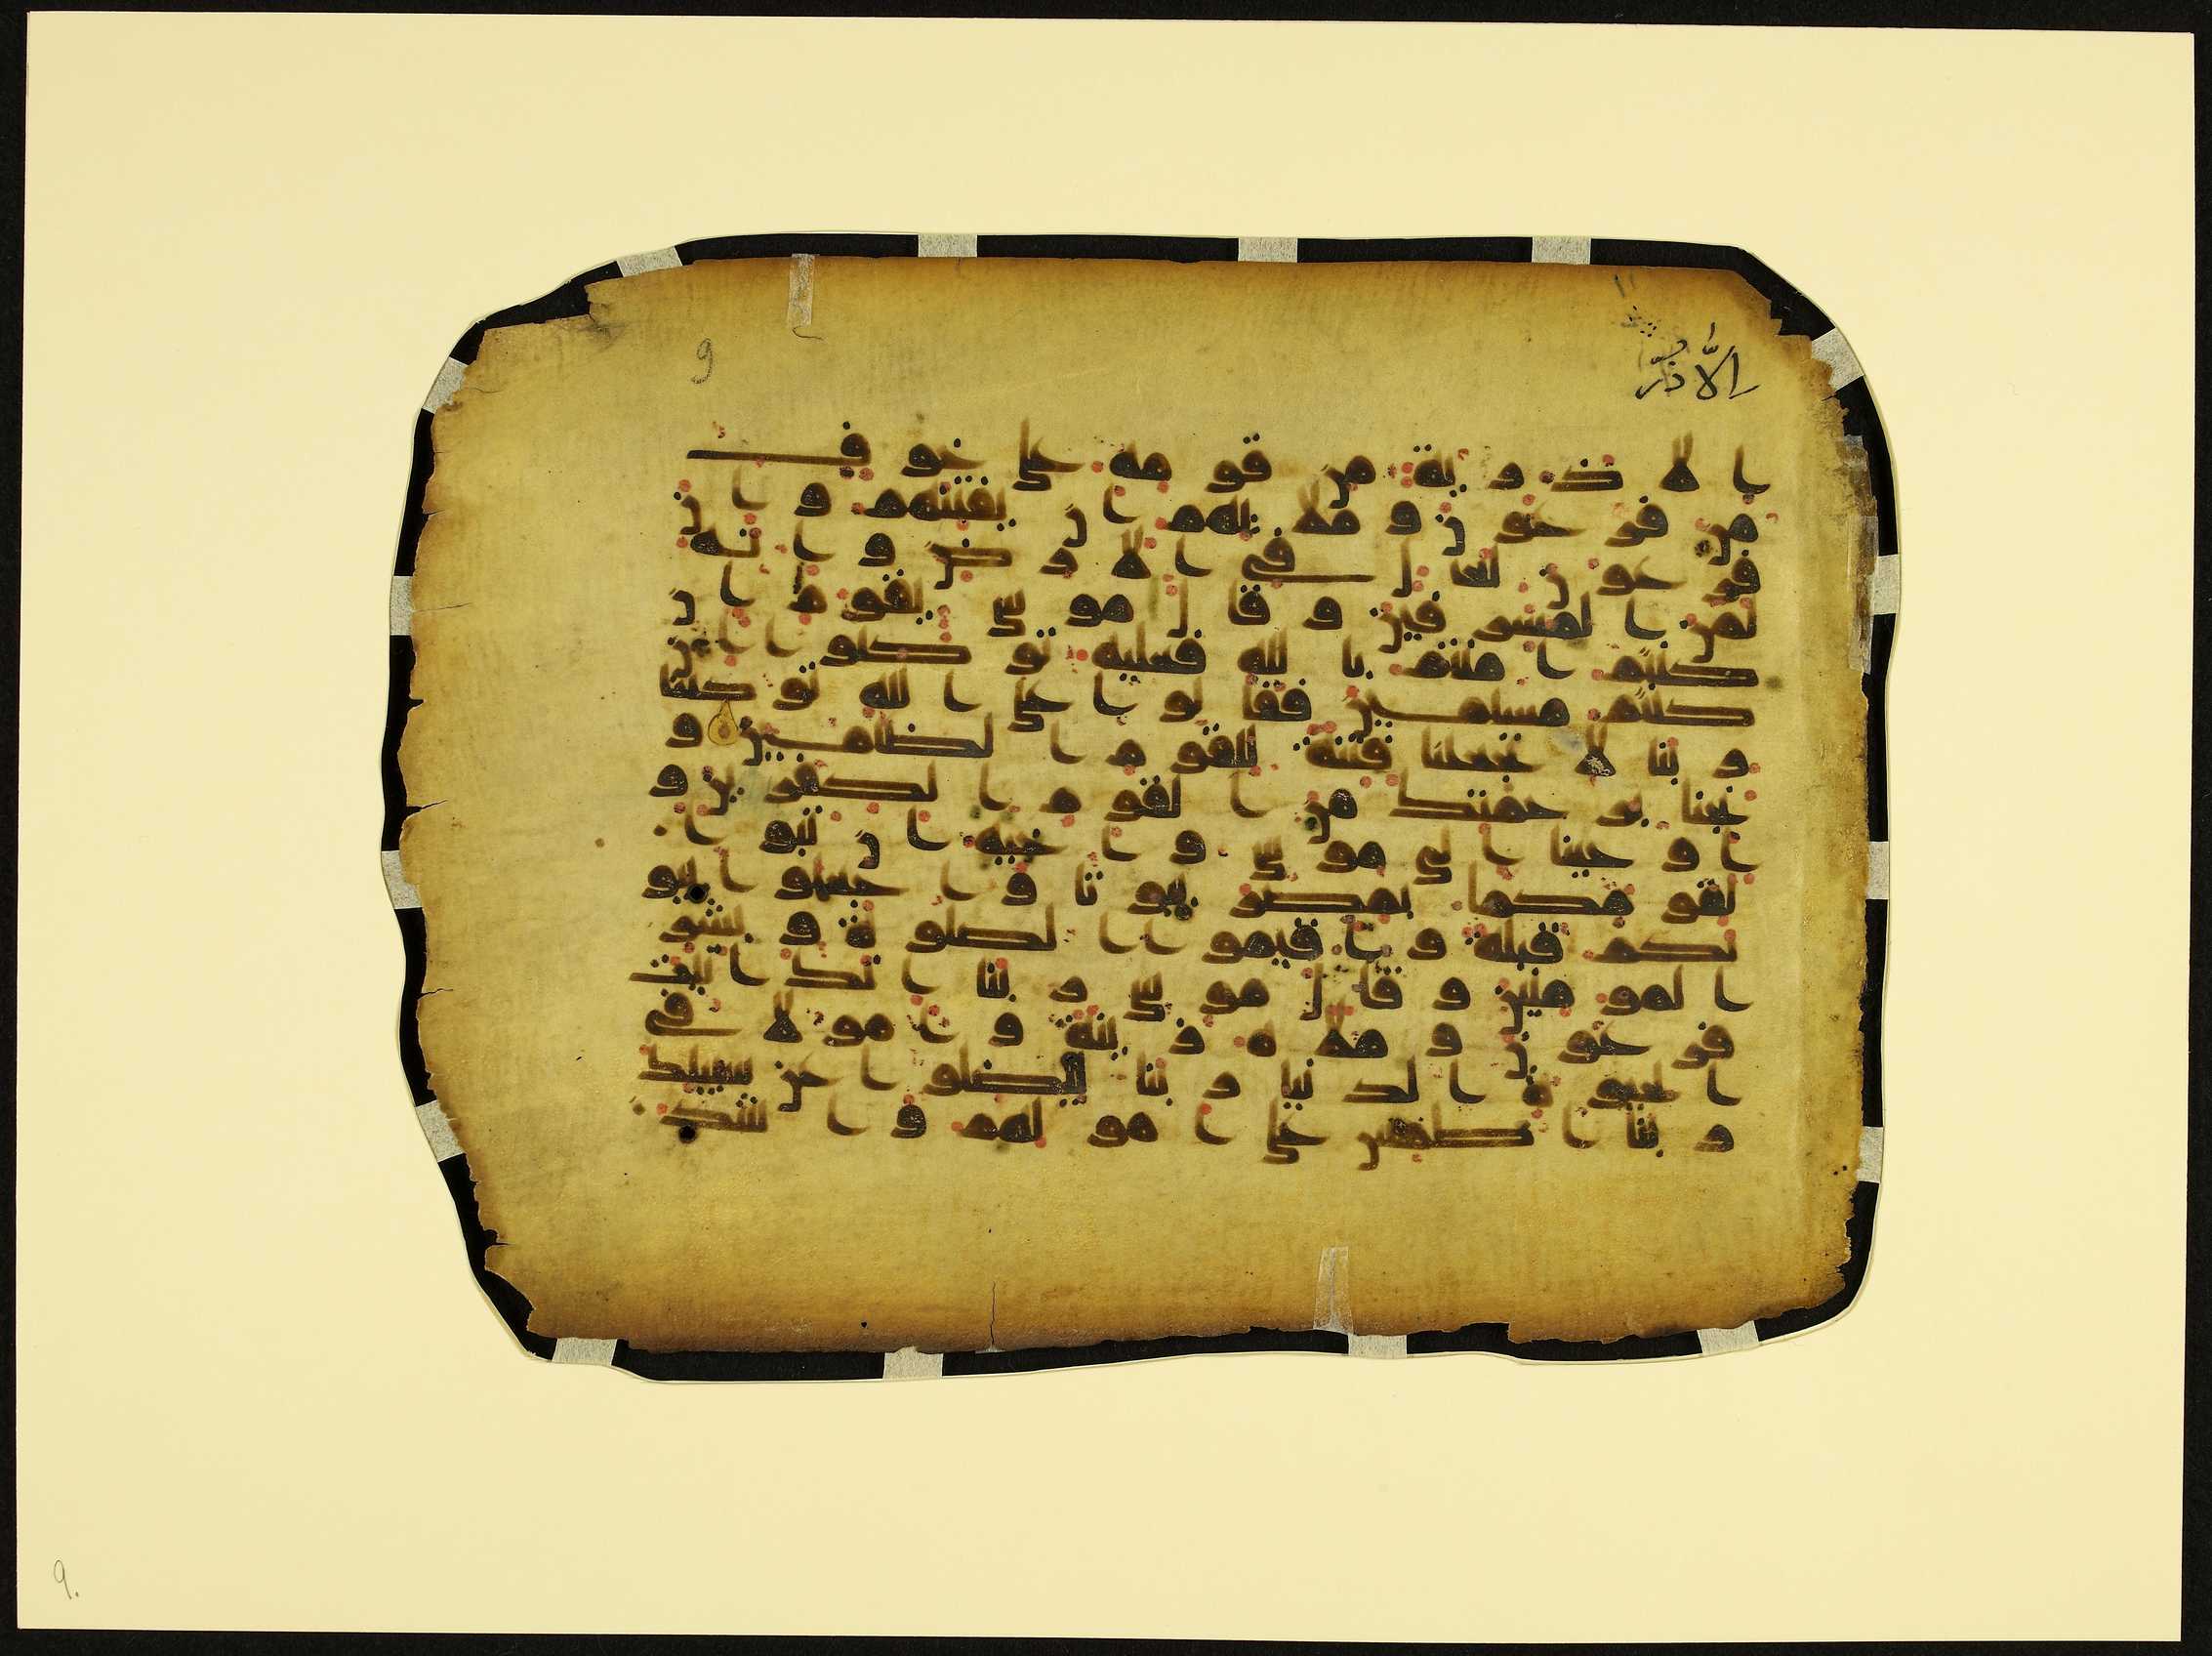 9
الّا ذرّ
الا ذرية من قومه على خوف
من فرعون وملايهم ان يفتنهم وان
فرعون لعال في الارض وانه
لمن المسرفين وقال موسى يقوم ان
كنتم امنتم بالله فعليه توكلوا ان
كنتم مسلمين فقالوا على الله توكلنا
ربنا لا تجعلنا فتنة للقوم الظلمين و
نجنا برحمتك من القوم الكفرين و
اوحينا الى موسى واخيه ان تبوا
لقومكما بمصر بيوتا واجعلوا بيو
تكم قبلة واقيموا الصلوة وبشر
المومنين وقال موسى ربنا انك اتيت
فرعون وملاه زينة وامولا في
الحيوة الدنيا ربنا ليضلوا عن سبيلك
ربنا اطمس على امولهم واشدد
9.